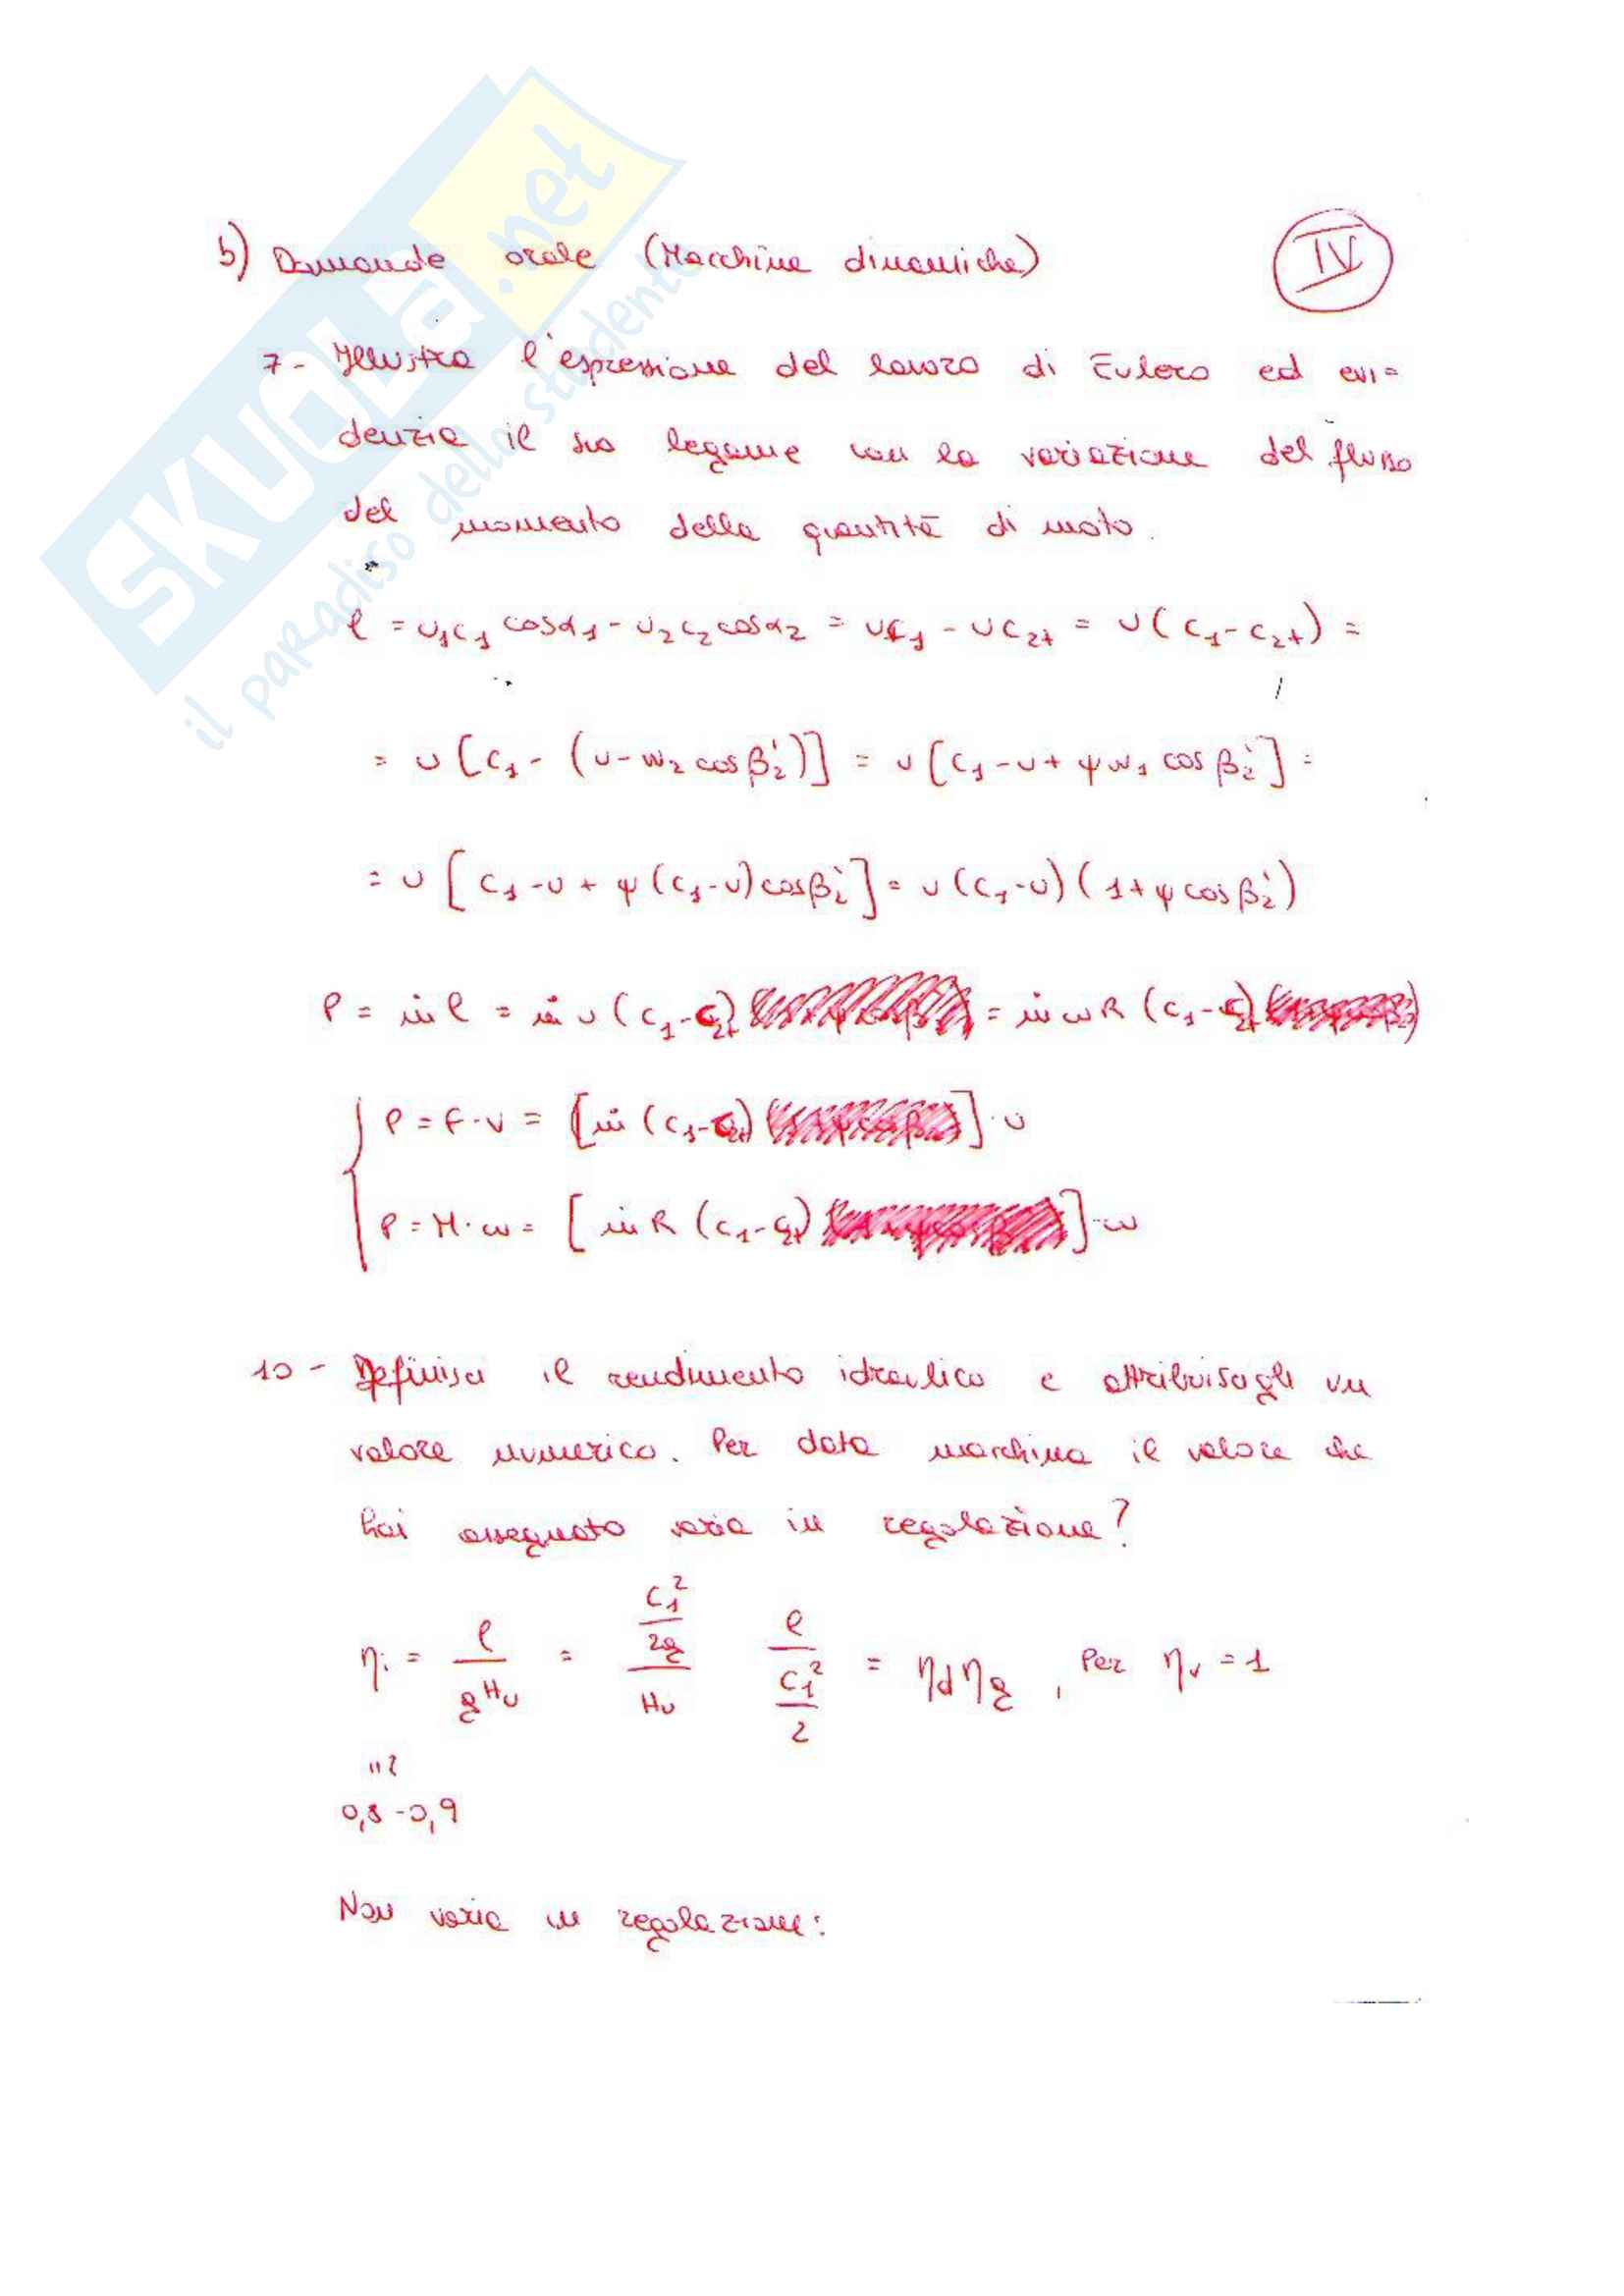 SKUOLA.net
il paradiso dello studente
b) Domande orale (Macchine dinamiche)
IV
7- Illustra l'espressione del lavoro di Eulero ed evi=
denzia il suo legame con la variazione del flusso
del momento della quantità di moto.
l = u₁c₁ cosα₁ - u₂c₂cosα₂ = uc₁ - uc₂ₜ = u(c₁-c₂ₜ) =
= u[c₁- (u-w₂cosβ₂')] = u[c₁-u+ψw₁cosβ₂'] =
= u[c₁-u+ψ(c₁-u)cosβ₂'] = u(c₁-u)(1+ψcosβ₂')
P = ṁl = ṁu(c₁-c₂ₜ) = ṁωR(c₁-c₂ₜ)
P = F·v = [ṁ(c₁-c₂ₜ)]·u
P = M·ω = [ṁR(c₁-c₂ₜ)]·ω
10- Definisci il rendimento idraulico e attribuiscagli un
valore numerico. Per data macchina il valore che
hai assegnato varia in regolazione?
ηi = l/gHu = (c₁²/2g)/Hu l/(c₁²/2) = ηdηg, per ηv=1
0,8-0,9
Non varia in regolazione: